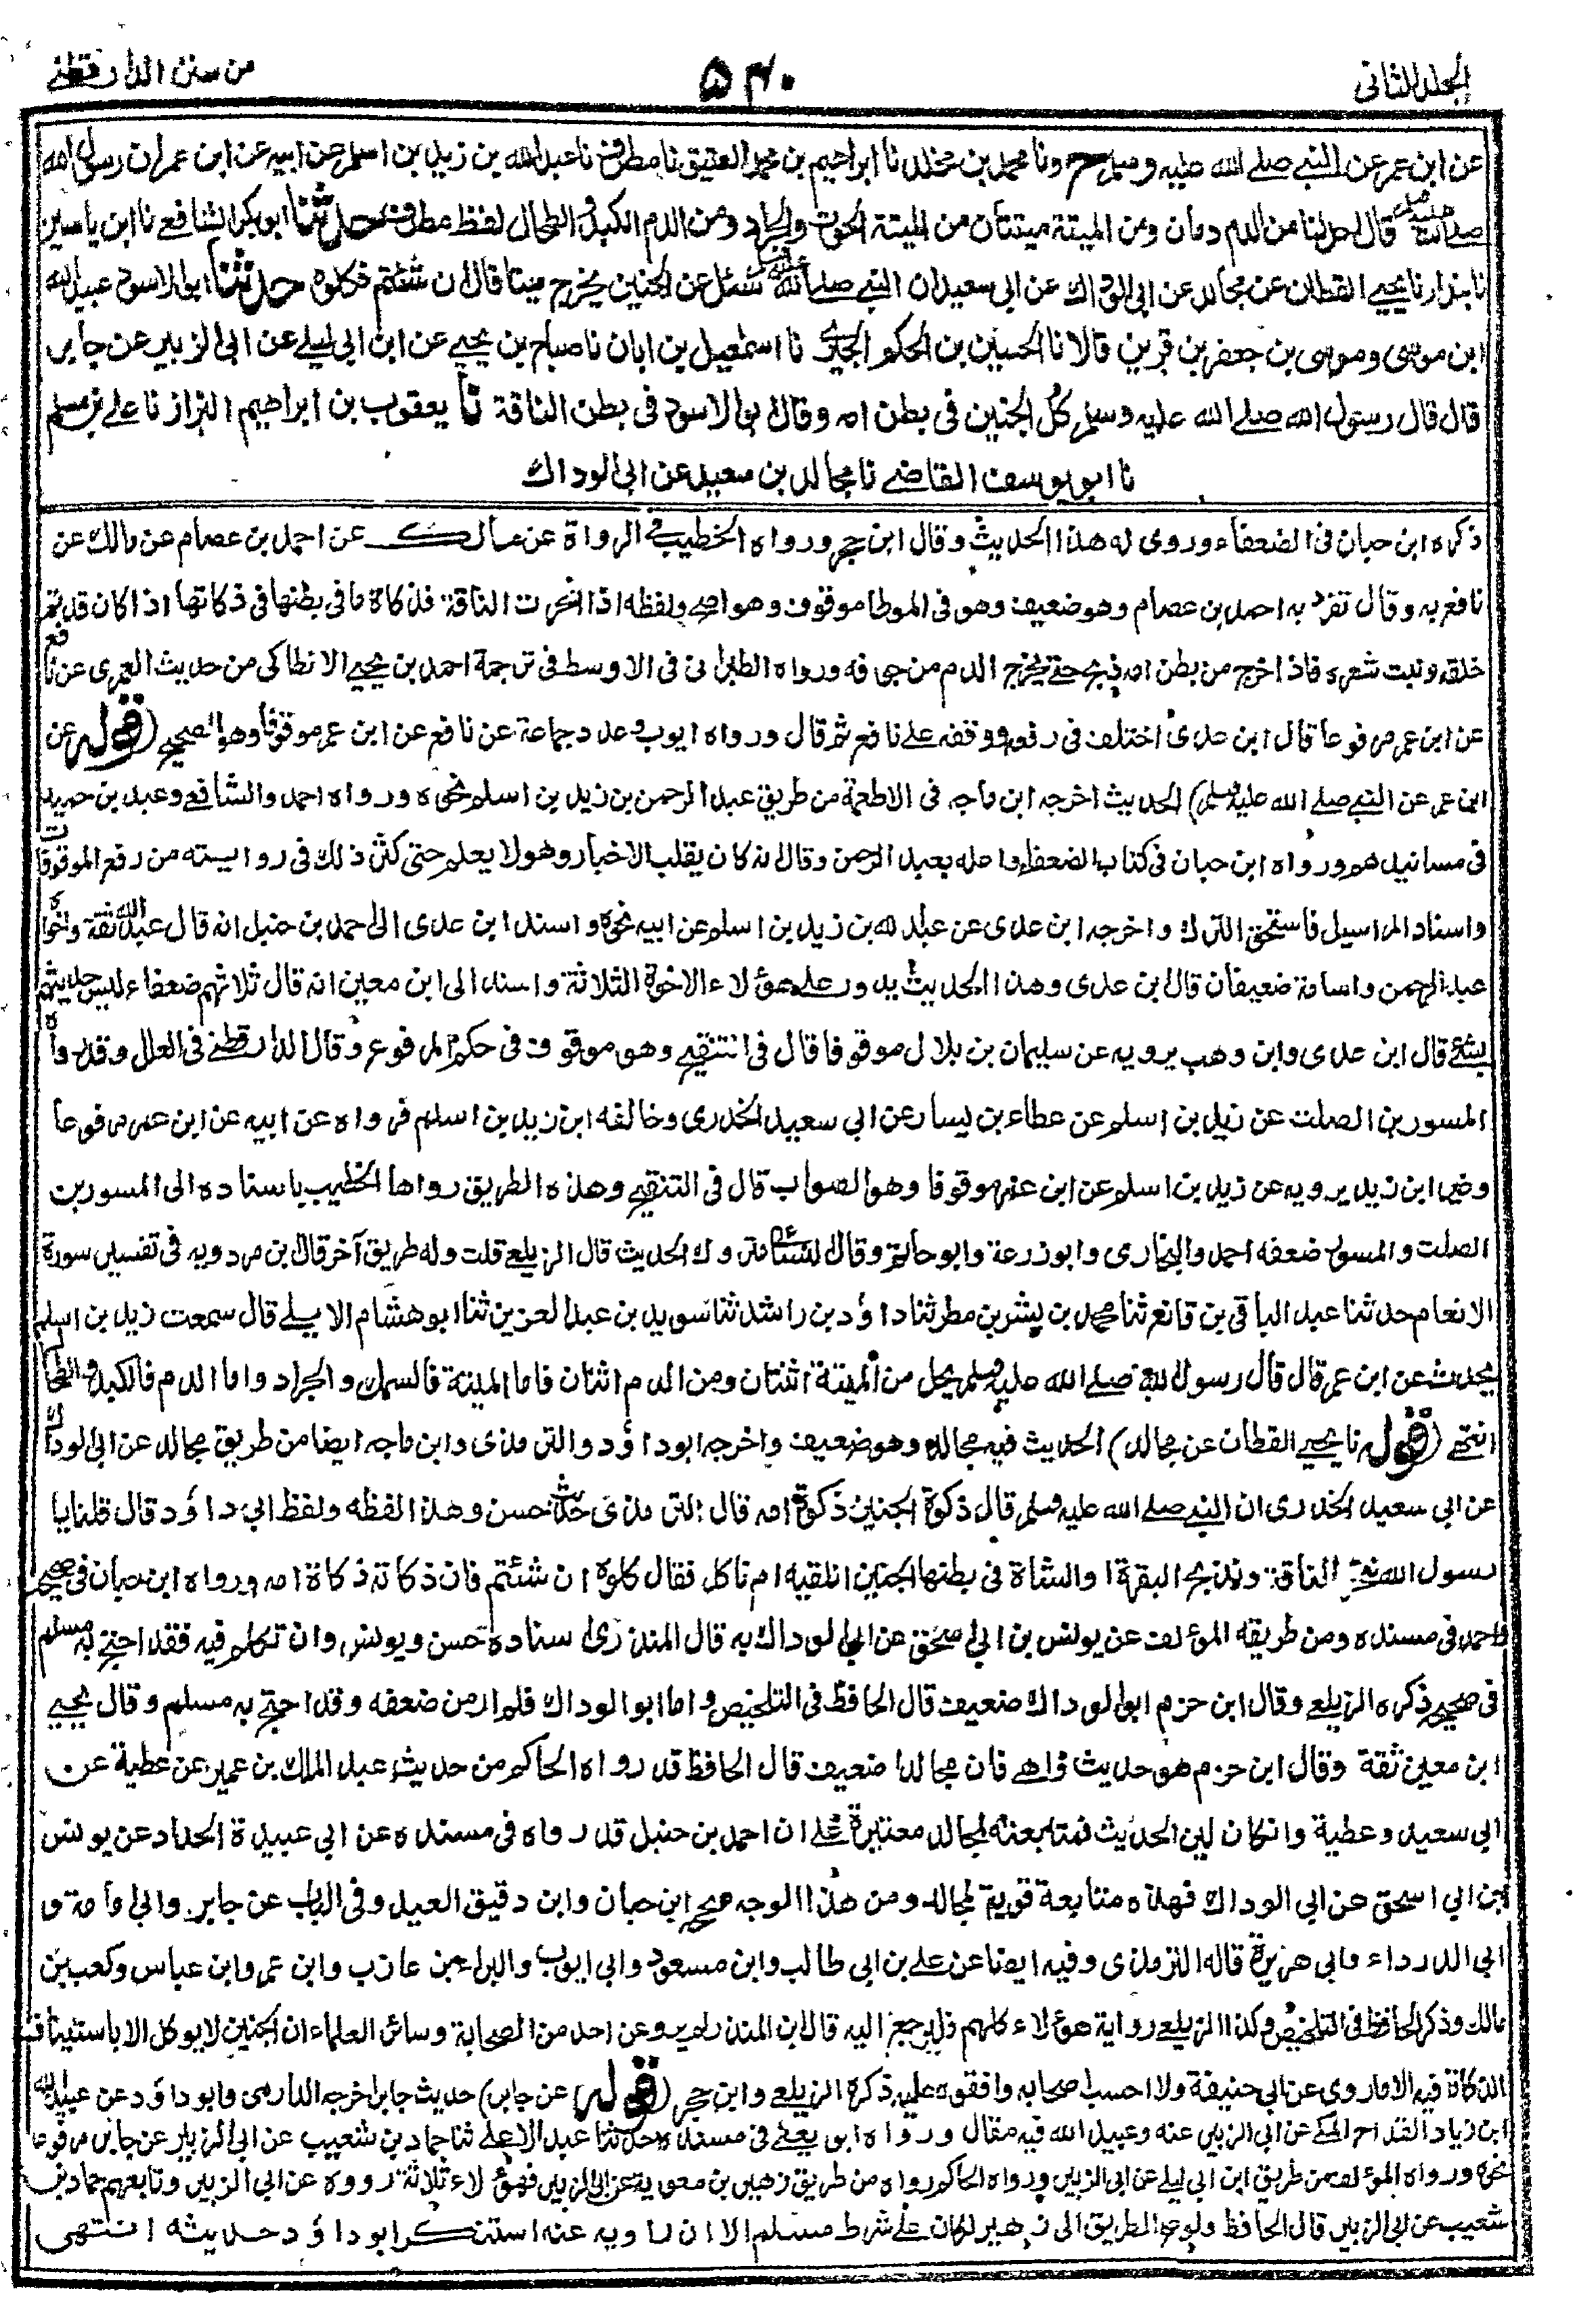 المجلد الثانى
۵۴۰
من سنن الدارقطنے
عن ابن عمر عن النبے صلے الله عليه وسلم ح ونا محمد بن مخلد نا ابراهيم بن محمد العتيق نا مطرف نا عبد الله بن زيد بن اسلم عن ابيه عن ابن عمر ان رسول الله
صلے الله عليه وسلم قال احل لنا من الدم دمان ومن الميتة ميتتان من الميتة الحوت والجراد ومن الدم الكبد والطحال لفظ مطرف حدثنا ابو بكر الشافعے نا ابن ياسين
نا بندار نا يحيے القطان عن مجالد عن ابى الوداك عن ابى سعيد ان النبے صلے الله عليه وسلم سئل عن الجنين يخرج ميتا قال ان شئتم فكلوه حدثنا ابو الاسود عبيد الله
ابن موسى وموسى بن جعفر بن قرين قالا نا الحسين بن الحكم الحبرى نا اسمعيل بن ابان نا صباح بن يحيے عن ابن ابى ليلے عن ابى الزبير عن جابر
قال قال رسول الله صلے الله عليه وسلم كل الجنين فى بطن امه وقال ابو الاسود فى بطن الناقة نا يعقوب بن ابراهيم البزاز نا علے بن مسلم
نا ابو يوسف القاضے نا مجالد بن سعيد عن ابى الوداك
ذكره ابن حبان فى الضعفاء وروى له هذا الحديث وقال ابن حجر ورواه الخطيب فى الرواة عن مالك عن احمد بن عصام عن مالك عن
نافع به وقال تفرد به احمد بن عصام وهو ضعيف وهو فى الموطا موقوف وهو اصح ولفظه اذا نحرت الناقة فذكاة ما فى بطنها فى ذكاتها اذا كان قد تم
خلقه ونبت شعره فاذا خرج من بطن امه ذبح حتے يخرج الدم من جوفه ورواه الطبرانى فى الاوسط فى ترجمة احمد بن يحيے الانطاكى من حديث العمرى عن نافع
عن ابن عمر مرفوعا قال ابن عدى اختلف فى رفعه ووقفه علے نافع ثم قال ورواه ايوب وعدد جماعة عن نافع عن ابن عمر موقوفا وهو الصحيح (قوله عن
ابن عمر عن النبے صلے الله عليه وسلم) الحديث اخرجه ابن ماجه فى الاطعمة من طريق عبد الرحمن بن زيد بن اسلم نحوه ورواه احمد والشافعے وعبد بن حميد
فى مسانيدهم ورواه ابن حبان فى كتاب الضعفاء واعله بعبد الرحمن وقال انه كان يقلب الاخبار وهو لا يعلم حتى كثر ذلك فى روايته من رفع الموقوفات
واسناد المراسيل فاستحق الترك واخرجه ابن عدى عن عبد الله بن زيد بن اسلم عن ابيه نحوه واسند ابن عدى الى احمد بن حنبل انه قال عبد الله ثقة واخواه
عبد الرحمن واسامة ضعيفان قال ابن عدى وهذا الحديث يدور علے هؤلاء الاخوة الثلاثة واسند الى ابن معين انه قال ثلاثتهم ضعفاء ليس حديثهم
بشئ قال ابن عدى وابن وهب يرويه عن سليمان بن بلال موقوفا قال فى التنقيح وهو موقوف فى حكم المرفوع وقال الدارقطنے فى العلل وقد رواه
المسور بن الصلت عن زيد بن اسلم عن عطاء بن يسار عن ابى سعيد الخدرى وخالفه ابن زيد بن اسلم فرواه عن ابيه عن ابن عمر مرفوعا
وغير ابن زيد يرويه عن زيد بن اسلم عن ابن عمر موقوفا وهو الصواب قال فى التنقيح وهذه الطريق رواها الخطيب باسناده الى المسور بن
الصلت والمسور ضعفه احمد والبخارى وابو زرعة وابو حاتم وقال النسائے متروك الحديث قال الزيلعے قلت وله طريق آخر قال ابن مردويه فى تفسير سورة
الانعام حدثنا عبد الباقى بن قانع ثنا محمد بن بشر بن مطر ثنا داؤد بن راشد ثنا سويد بن عبد العزيز ثنا ابو هشام الايلے قال سمعت زيد بن اسلم
يحدث عن ابن عمر قال قال رسول الله صلے الله عليه وسلم يحل من الميتة اثنتان ومن الدم اثنان فاما الميتة فالسمك والجراد واما الدم فالكبد والطحال
انتهے (قوله نا يحيے القطان عن مجالد) الحديث فيه مجالد وهو ضعيف واخرجه ابو داؤد والترمذى وابن ماجه ايضا من طريق مجالد عن ابى الوداك
عن ابى سعيد الخدرى ان النبے صلے الله عليه وسلم قال ذكوة الجنين ذكوة امه قال الترمذى حديث حسن وهذا لفظه ولفظ ابى داؤد قال قلنا يا
رسول الله ننحر الناقة ونذبح البقرة او الشاة فى بطنها الجنين انلقيه ام ناكل فقال كلوه ان شئتم فان ذكاته ذكاة امه ورواه ابن حبان فى صحيحه
واحمد فى مسنده ومن طريقه المؤلف عن يونس بن ابى اسحق عن ابى الوداك به قال المنذرى اسناده حسن ويونس وان تكلم فيه فقد احتج به مسلم
فى صحيحه ذكره الزيلعے وقال ابن حزم ابو الوداك ضعيف قال الحافظ فى التلخيص واما ابو الوداك فلم ار من ضعفه وقد احتج به مسلم وقال يحيے
ابن معين ثقة وقال ابن حزم هو حديث واهے فان مجالدا ضعيف قال الحافظ قد رواه الحاكم من حديث عبد الملك بن عمير عن عطية عن
ابى سعيد وعطية وان كان لين الحديث فمتابعته لمجالد معتبرة علے ان احمد بن حنبل قد رواه فى مسنده عن ابى عبيدة الحداد عن يونس
ابن ابى اسحق عن ابى الوداك فهذه متابعة قوية لمجالد ومن هذا الوجه صححه ابن حبان وابن دقيق العيد وفى الباب عن جابر وابى امامة و
ابى الدرداء وابى هريرة قاله الترمذى وفيه ايضا عن علے بن ابى طالب وابن مسعود وابى ايوب والبراء بن عازب وابن عمر وابن عباس وكعب بن
مالك وذكر الحافظ فى التلخيص وكذا الزيلعے رواية هؤلاء كلهم فليرجع اليه قال ابن المنذر لم يرو عن احد من الصحابة وسائر العلماء ان الجنين لا يوكل الا باستيناف
الذكاة فيه الا ما روى عن ابى حنيفة ولا احسب اصحابه وافقوه عليه ذكره الزيلعے وابن حجر (قوله عن جابر) حديث جابر اخرجه الدارمى وابو داؤد عن عبيد الله
ابن زياد القداح المكے عن ابى الزبير عنه وعبيد الله فيه مقال ورواه ابو يعلے فى مسنده حدثنا عبد الاعلے ثنا حماد بن شعيب عن ابى الزبير عن جابر مرفوعا
نحوه ورواه المؤلف من طريق ابن ابى ليلے عن ابى الزبير ورواه الحاكم رواه من طريق زهير بن معوية عن ابى الزبير فهؤلاء ثلاثة رووه عن ابى الزبير وتابعهم حماد بن
شعيب عن ابى الزبير قال الحافظ ولو صح الطريق الى زهير لكان علے شرط مسلم الا ان راويه عنه استنكر ابو داؤد حديثه انتهى